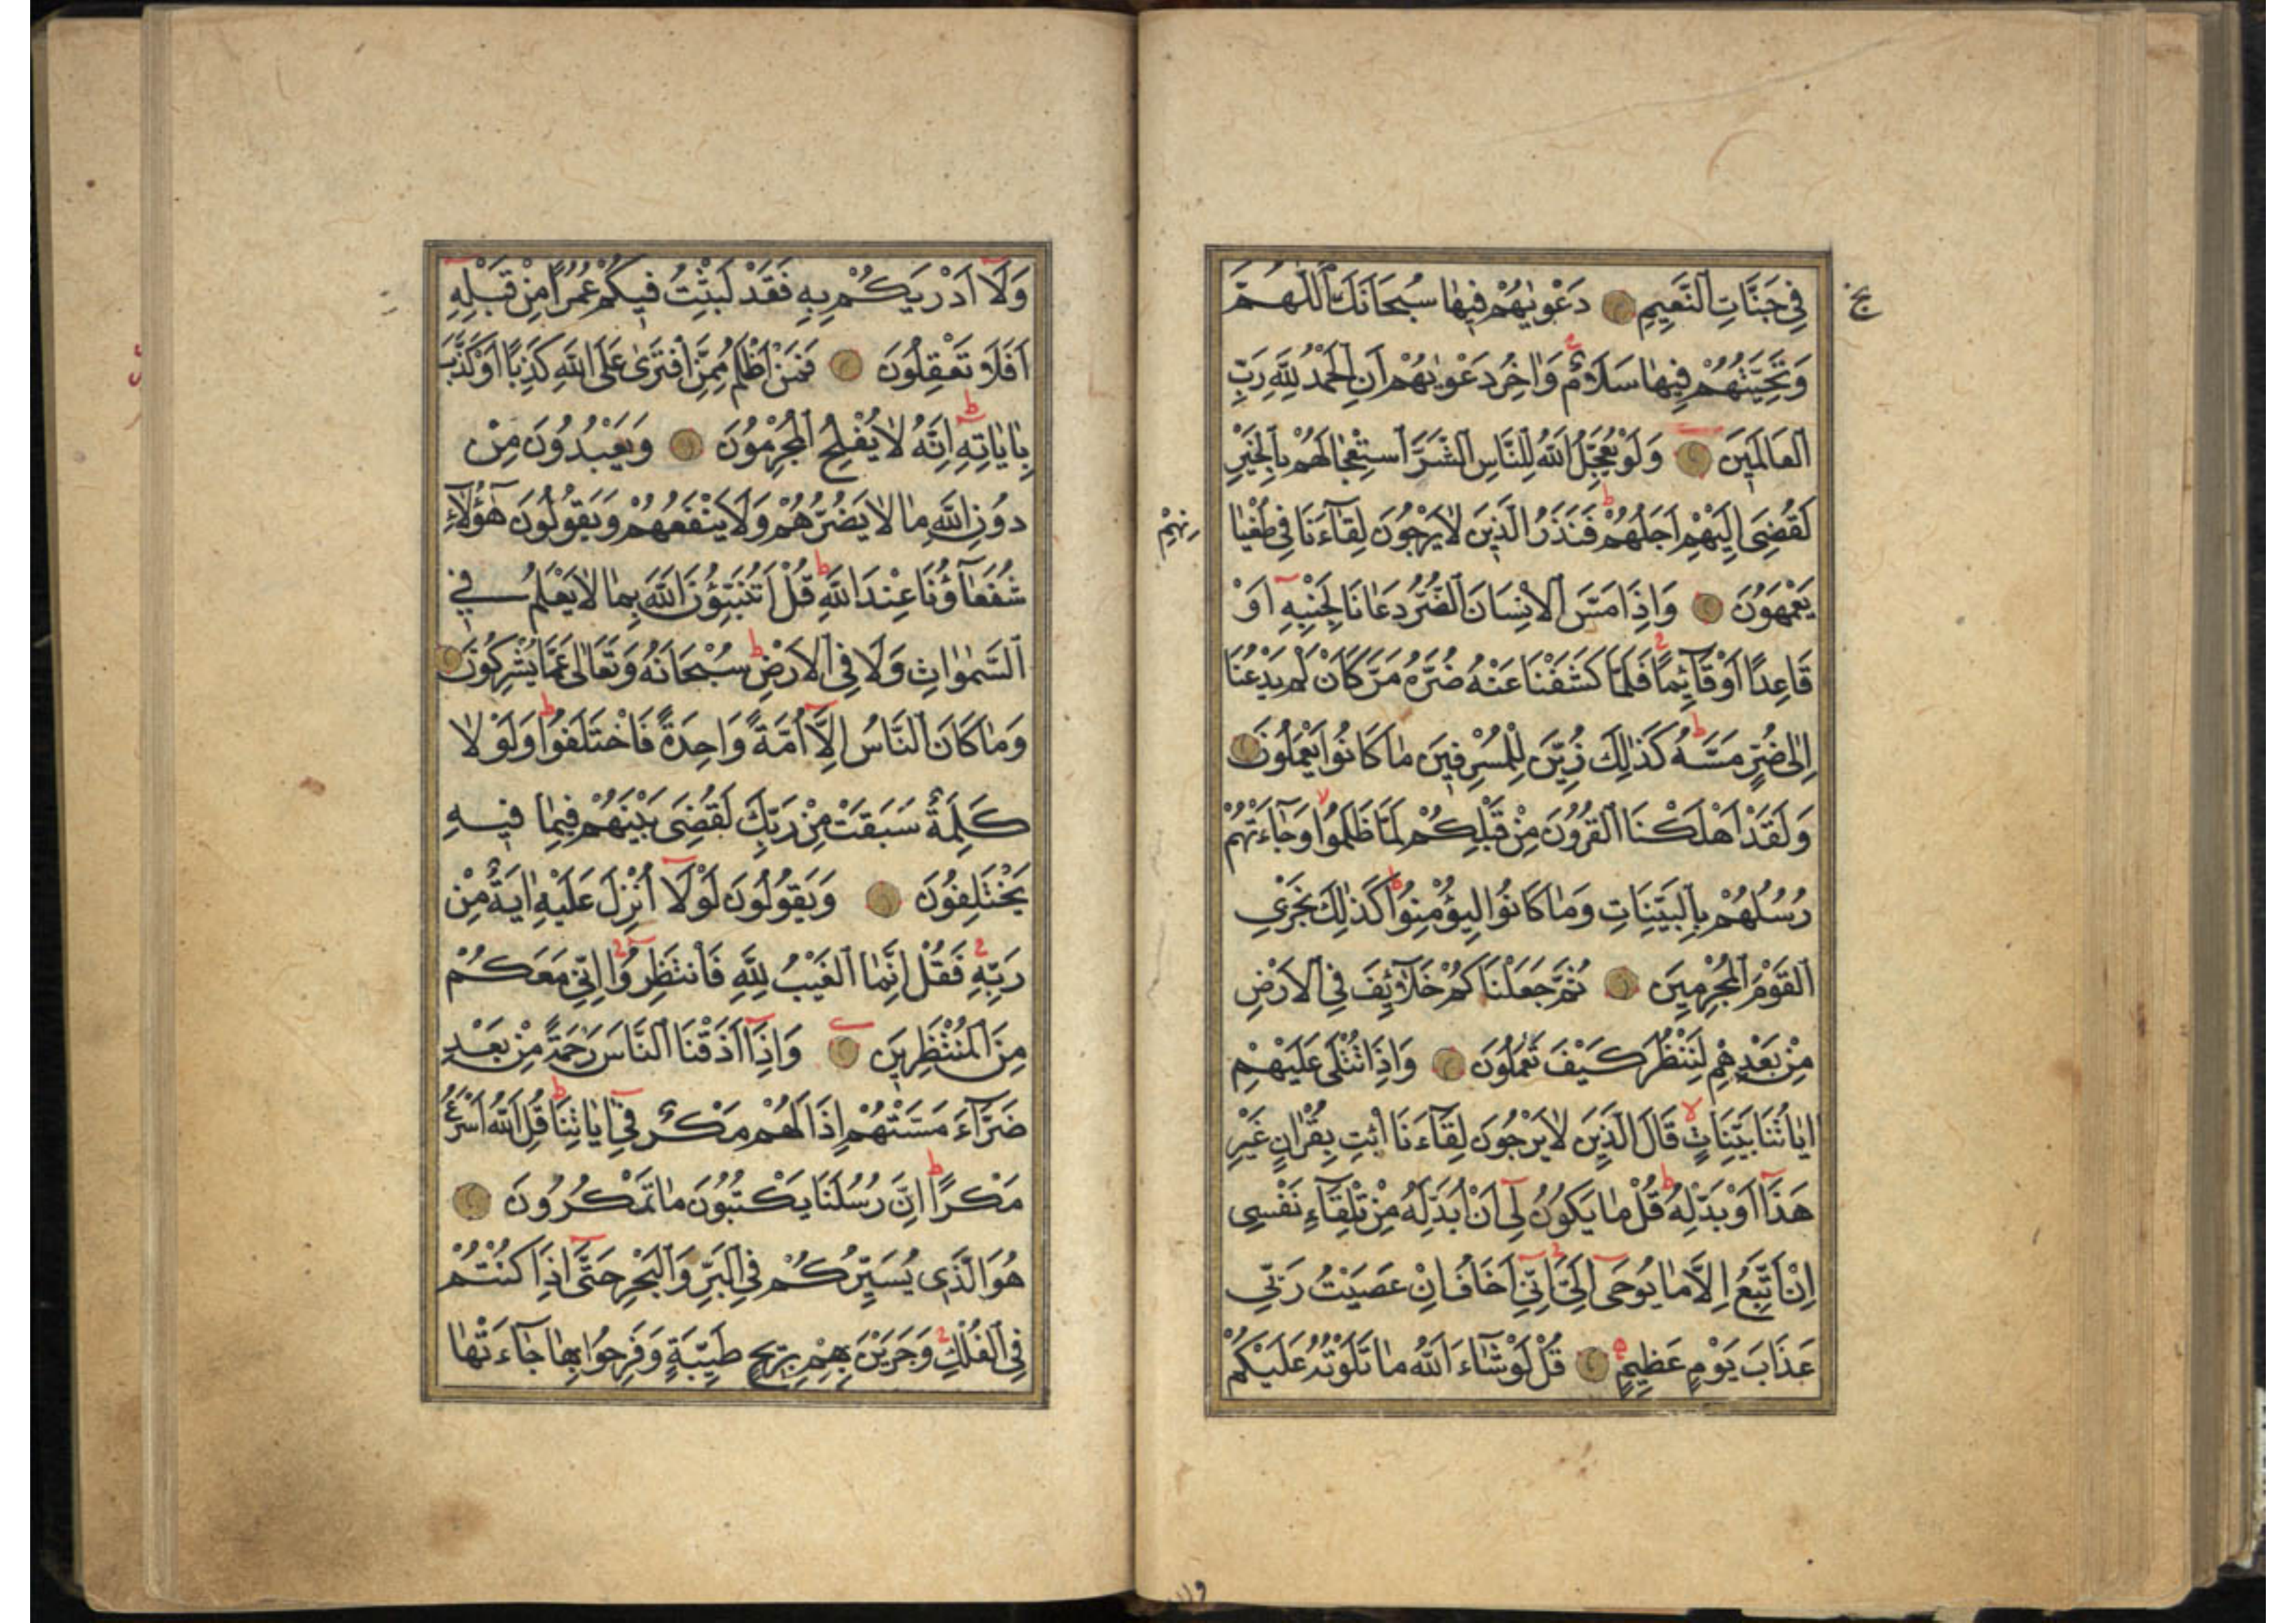 فِي جَنَّاتِ النَّعِيمِ دَعْوٰيهُمْ فِيهَا سُبْحَانَكَ اللّٰهُمَّ
وَتَحِيَّتُهُمْ فِيهَا سَلَامٌ وَاٰخِرُ دَعْوٰيهُمْ اَنِ الْحَمْدُ لِلّٰهِ رَبِّ
الْعَالَمِينَ وَلَوْ يُعَجِّلُ اللّٰهُ لِلنَّاسِ الشَّرَّ اسْتِعْجَالَهُمْ بِالْخَيْرِ
لَقُضِيَ اِلَيْهِمْ اَجَلُهُمْ فَنَذَرُ الَّذِينَ لَا يَرْجُونَ لِقَاءَنَا فِي طُغْيَا
نِهِمْ
يَعْمَهُونَ وَاِذَا مَسَّ الْاِنْسَانَ الضُّرُّ دَعَانَا لِجَنْبِهِ اَوْ
قَاعِدًا اَوْ قَائِمًا فَلَمَّا كَشَفْنَا عَنْهُ ضُرَّهُ مَرَّ كَاَنْ لَمْ يَدْعُنَا
اِلٰى ضُرٍّ مَسَّهُ كَذٰلِكَ زُيِّنَ لِلْمُسْرِفِينَ مَا كَانُوا يَعْمَلُونَ
وَلَقَدْ اَهْلَكْنَا الْقُرُونَ مِنْ قَبْلِكُمْ لَمَّا ظَلَمُوا وَجَاءَتْهُمْ
رُسُلُهُمْ بِالْبَيِّنَاتِ وَمَا كَانُوا لِيُؤْمِنُوا كَذٰلِكَ نَجْزِي
الْقَوْمَ الْمُجْرِمِينَ ثُمَّ جَعَلْنَاكُمْ خَلَائِفَ فِي الْاَرْضِ
مِنْ بَعْدِهِمْ لِنَنْظُرَ كَيْفَ تَعْمَلُونَ وَاِذَا تُتْلٰى عَلَيْهِمْ
اٰيَاتُنَا بَيِّنَاتٍ قَالَ الَّذِينَ لَا يَرْجُونَ لِقَاءَنَا ائْتِ بِقُرْاٰنٍ غَيْرِ
هٰذَا اَوْ بَدِّلْهُ قُلْ مَا يَكُونُ لِي اَنْ اُبَدِّلَهُ مِنْ تِلْقَاءِ نَفْسِي
اِنْ اَتَّبِعُ اِلَّا مَا يُوحٰى اِلَيَّ اِنِّي اَخَافُ اِنْ عَصَيْتُ رَبِّي
عَذَابَ يَوْمٍ عَظِيمٍ قُلْ لَوْ شَاءَ اللّٰهُ مَا تَلَوْتُهُ عَلَيْكُمْ
وَلَا اَدْرٰيكُمْ بِهِ فَقَدْ لَبِثْتُ فِيكُمْ عُمُرًا مِنْ قَبْلِهِ
اَفَلَا تَعْقِلُونَ فَمَنْ اَظْلَمُ مِمَّنِ افْتَرٰى عَلَى اللّٰهِ كَذِبًا اَوْ كَذَّبَ
بِاٰيَاتِهِ اِنَّهُ لَا يُفْلِحُ الْمُجْرِمُونَ وَيَعْبُدُونَ مِنْ
دُونِ اللّٰهِ مَا لَا يَضُرُّهُمْ وَلَا يَنْفَعُهُمْ وَيَقُولُونَ هٰؤُلَاءِ
شُفَعَاؤُنَا عِنْدَ اللّٰهِ قُلْ اَتُنَبِّؤُنَ اللّٰهَ بِمَا لَا يَعْلَمُ فِي
السَّمٰوَاتِ وَلَا فِي الْاَرْضِ سُبْحَانَهُ وَتَعَالٰى عَمَّا يُشْرِكُونَ
وَمَا كَانَ النَّاسُ اِلَّا اُمَّةً وَاحِدَةً فَاخْتَلَفُوا وَلَوْ لَا
كَلِمَةٌ سَبَقَتْ مِنْ رَبِّكَ لَقُضِيَ بَيْنَهُمْ فِيمَا فِيهِ
يَخْتَلِفُونَ وَيَقُولُونَ لَوْلَا اُنْزِلَ عَلَيْهِ اٰيَةٌ مِنْ
رَبِّهِ فَقُلْ اِنَّمَا الْغَيْبُ لِلّٰهِ فَانْتَظِرُوا اِنِّي مَعَكُمْ
مِنَ الْمُنْتَظِرِينَ وَاِذَا اَذَقْنَا النَّاسَ رَحْمَةً مِنْ بَعْدِ
ضَرَّاءَ مَسَّتْهُمْ اِذَا لَهُمْ مَكْرٌ فِي اٰيَاتِنَا قُلِ اللّٰهُ اَسْرَعُ
مَكْرًا اِنَّ رُسُلَنَا يَكْتُبُونَ مَا تَمْكُرُونَ
هُوَ الَّذِي يُسَيِّرُكُمْ فِي الْبَرِّ وَالْبَحْرِ حَتّٰى اِذَا كُنْتُمْ
فِي الْفُلْكِ وَجَرَيْنَ بِهِمْ بِرِيحٍ طَيِّبَةٍ وَفَرِحُوا بِهَا جَاءَتْهَا